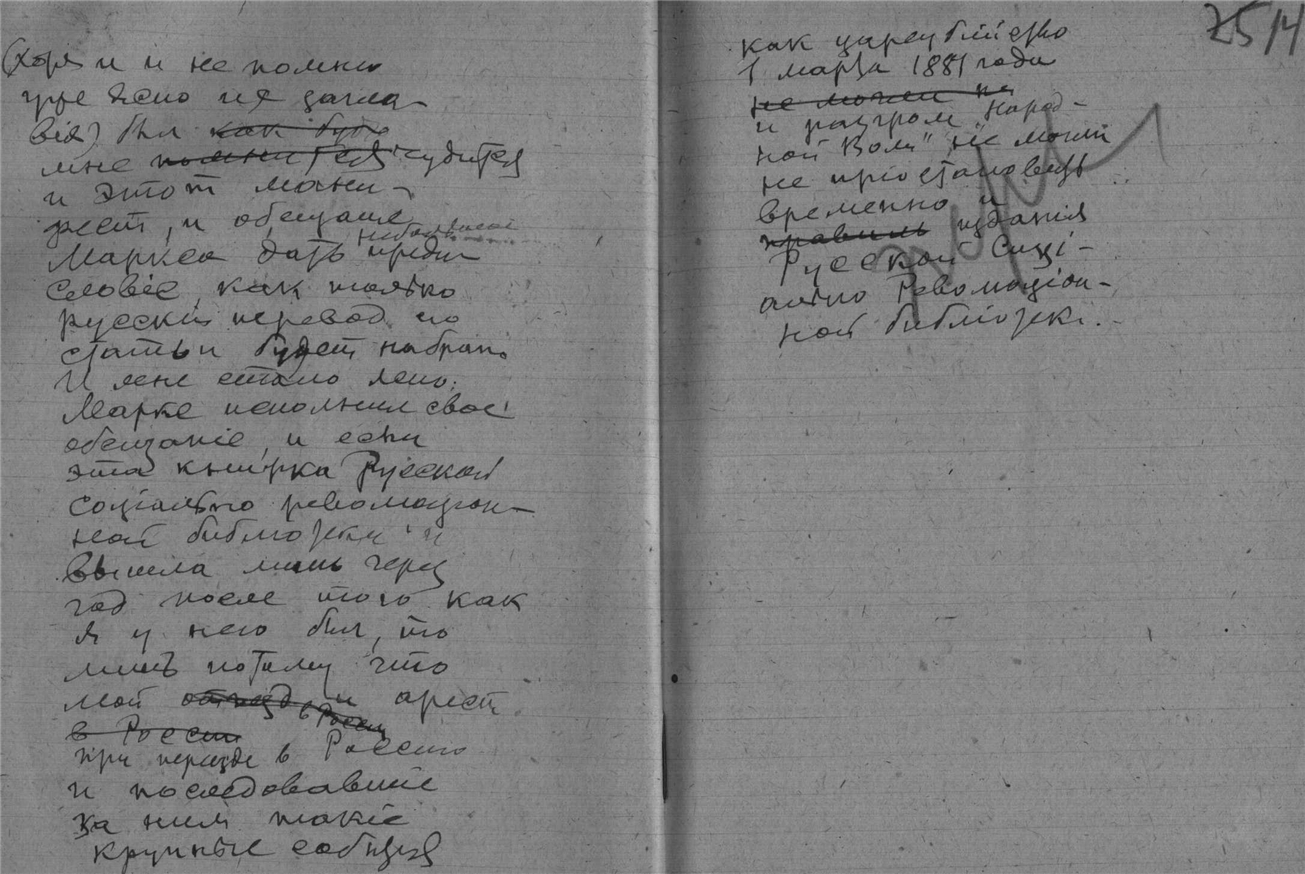 (хотя и и не помню
уже ясно ея загла-
вія) был как будто
мне помнится чудится
и этот мани-
фест, и обещаше
небольшое
Маркса дать преди-
словіе, как только
русскій перевод его
статьи будет набран.
И мне стало ясно:
Маркс исполнил свое
обещаніе, и если
эта книжка Русской
соціально революціон-
ной библіотеки и
вышла лишь через
год после того как
я у него был, то
лишь потому что
мой отъезд и арест
в России в Россіи
при переезде в Россію
и последовавшіе
за ним такіе
крупные событія
25/4
как цареубійство
1 марта 1881 года
не могли не
и разгром „Народ-
ной Воли" не могли
не пріостановить
временно и
изданія
Русской Соці-
ально Революціон-
ной библіотеки.